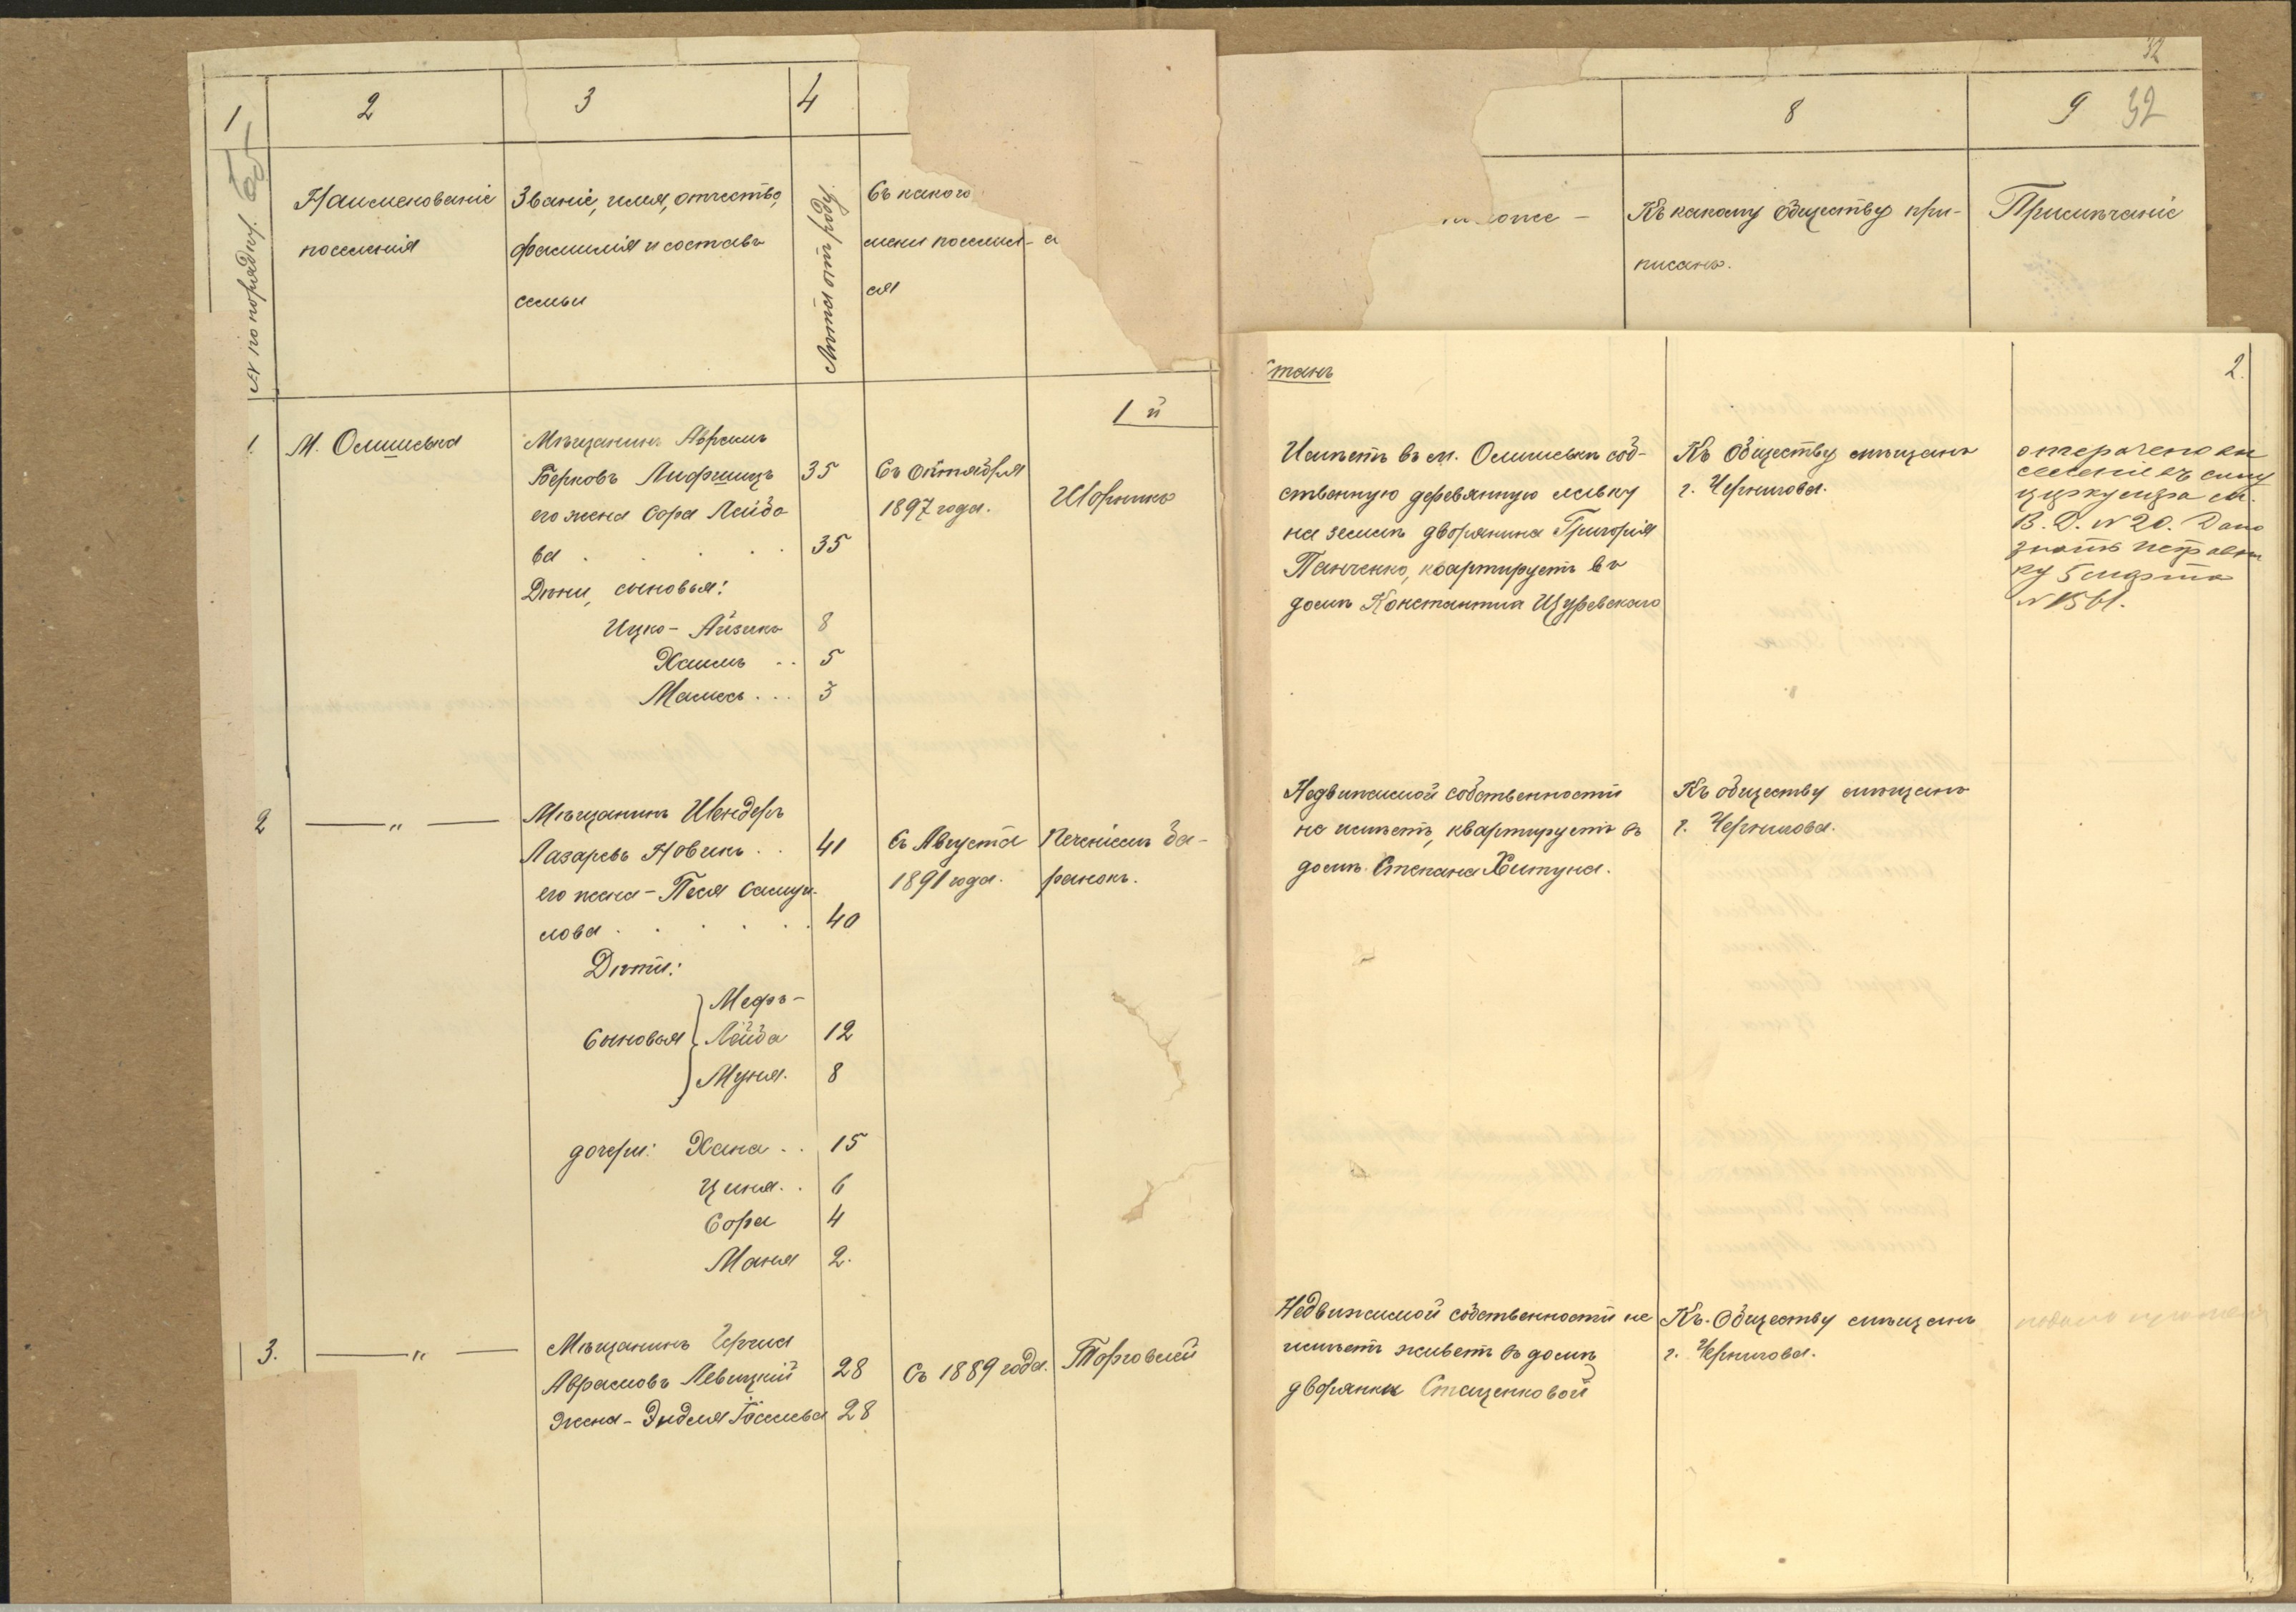 32
1
2
3
4
8
9 32
№ по порядку.
Наименованіе
поселенія
Званіе, имя, отчество,
фамилія и составъ
семьи
Сколько отъ роду
Съ какого
мени поселил-
ся
Къ какому обществу при-
писанъ.
Примѣчаніе
1 й
Станъ
2.
1
М. Олишевка
Мѣщанинъ Абрамъ
Берковъ Лифшицъ 35
его жена Сора Лейбо
ва . . . . . 35
Дѣти, сыновья:
Ицко-Айзикъ 8
Хаимъ .. 5
Малехъ... 3
Съ октября
1897 года.
Шорникъ
Имѣетъ въ м. Олишевкѣ соб-
ственную деревянную лавку
на землѣ дворянина Григорія
Панченко, квартируетъ въ
домѣ Константина Щуревскаго
Къ обществу мѣщанъ
г. Чернигова.
отсрочено вы
селеніе въ силу
циркуляра М.
В. Д. № 20. Дано
знать исправни
ку 5 марта
№ 1561.
2
— " —
Мѣщанинъ Шендеръ
Лазаревъ Новикъ .. 41
его жена - Песя Самуи-
лова . . . . . 40
Дѣти:
Сыновья
Меръ-
Лейба 12
Муня. 8
дочери: Хана .. 15
Циня.. 6
Сора 4
Маня 2.
Съ Августа
1891 года.
Печеніемъ ба-
ранокъ.
Недвижимой собственности
не имѣетъ, квартируетъ въ
домѣ Степана Хитуна.
Къ обществу мѣщанъ
г. Чернигова.
3.
— " —
Мѣщанинъ
Абрамовъ Левицкій 28
Жена - 28
Съ 1889 года.
Торговлей
Недвижимой собственности не
имѣетъ живетъ въ домѣ
дворянки Стаценковой
Къ обществу мѣщанъ
г. Чернигова.